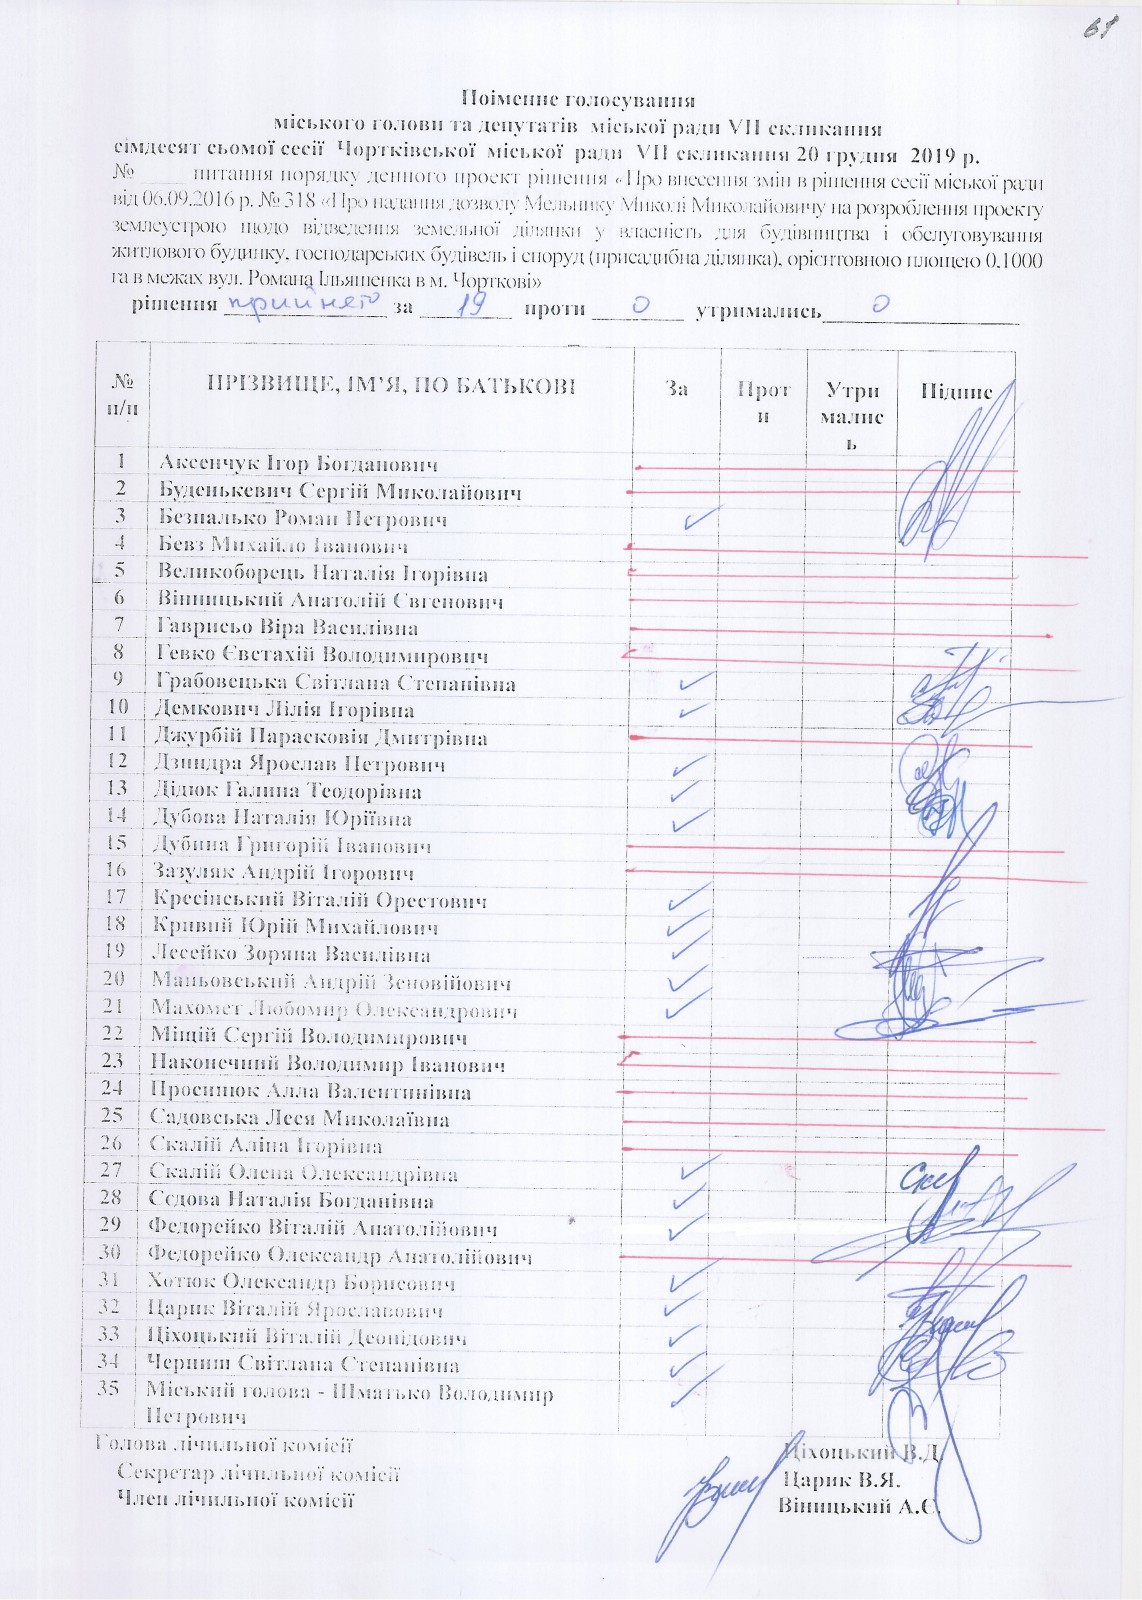 69
Поіменне голосування
міського голови та депутатів міської ради VII скликання
сімдесят сьомої сесії Чортківської міської ради VII скликання 20 грудня 2019 р.
№ ______ питання порядку денного проект рішення «Про внесення змін в рішення сесії міської ради
від 06.09.2016 р. № 318 «Про надання дозволу Мельнику Миколі Миколайовичу на розроблення проекту
землеустрою щодо відведення земельної ділянки у власність для будівництва і обслуговування
житлового будинку, господарських будівель і споруд (присадибна ділянка), орієнтовною площею 0,1000
га в межах вул. Романа Ільяшенка в м. Чорткові»
рішення прийнято за 19 проти 0 утримались 0
№ п/п ПРІЗВИЩЕ, ІМ’Я, ПО БАТЬКОВІ За Проти Утрималися Підпис
1 Аксенчук Ігор Богданович
2 Буденькевич Сергій Миколайович
3 Безпалько Роман Петрович ✓
4 Бевз Михайло Іванович
5 Великоборець Наталія Ігорівна
6 Вінницький Анатолій Євгенович
7 Гаврисьо Віра Василівна
8 Гевко Євстахій Володимирович
9 Грабовецька Світлана Степанівна ✓
10 Демкович Лілія Ігорівна ✓
11 Джурбій Парасковія Дмитрівна
12 Дзиндра Ярослав Петрович ✓
13 Дідюк Галина Теодорівна ✓
14 Дубова Наталія Юріївна ✓
15 Дубина Григорій Іванович
16 Зазуляк Андрій Ігорович
17 Кресінський Віталій Орестович ✓
18 Кривий Юрій Михайлович ✓
19 Лесейко Зоряна Василівна ✓
20 Маньовський Андрій Зеновійович ✓
21 Махомет Любомир Олександрович ✓
22 Міщій Сергій Володимирович
23 Наконечний Володимир Іванович
24 Просинюк Алла Валентинівна
25 Садовська Леся Миколаївна
26 Скалій Аліна Ігорівна
27 Скалій Олена Олександрівна ✓
28 Сєдова Наталія Богданівна ✓
29 Федорейко Віталій Анатолійович ✓
30 Федорейко Олександр Анатолійович
31 Хотюк Олександр Борисович ✓
32 Царик Віталій Ярославович ✓
33 Ціхоцький Віталій Деонідович ✓
34 Черниш Світлана Степанівна ✓
35 Міський голова - Шматько Володимир
Петрович ✓
Голова лічильної комісії Ціхоцький В.Д.
Секретар лічильної комісії Царик В.Я.
Член лічильної комісії Вінницький А.Є.